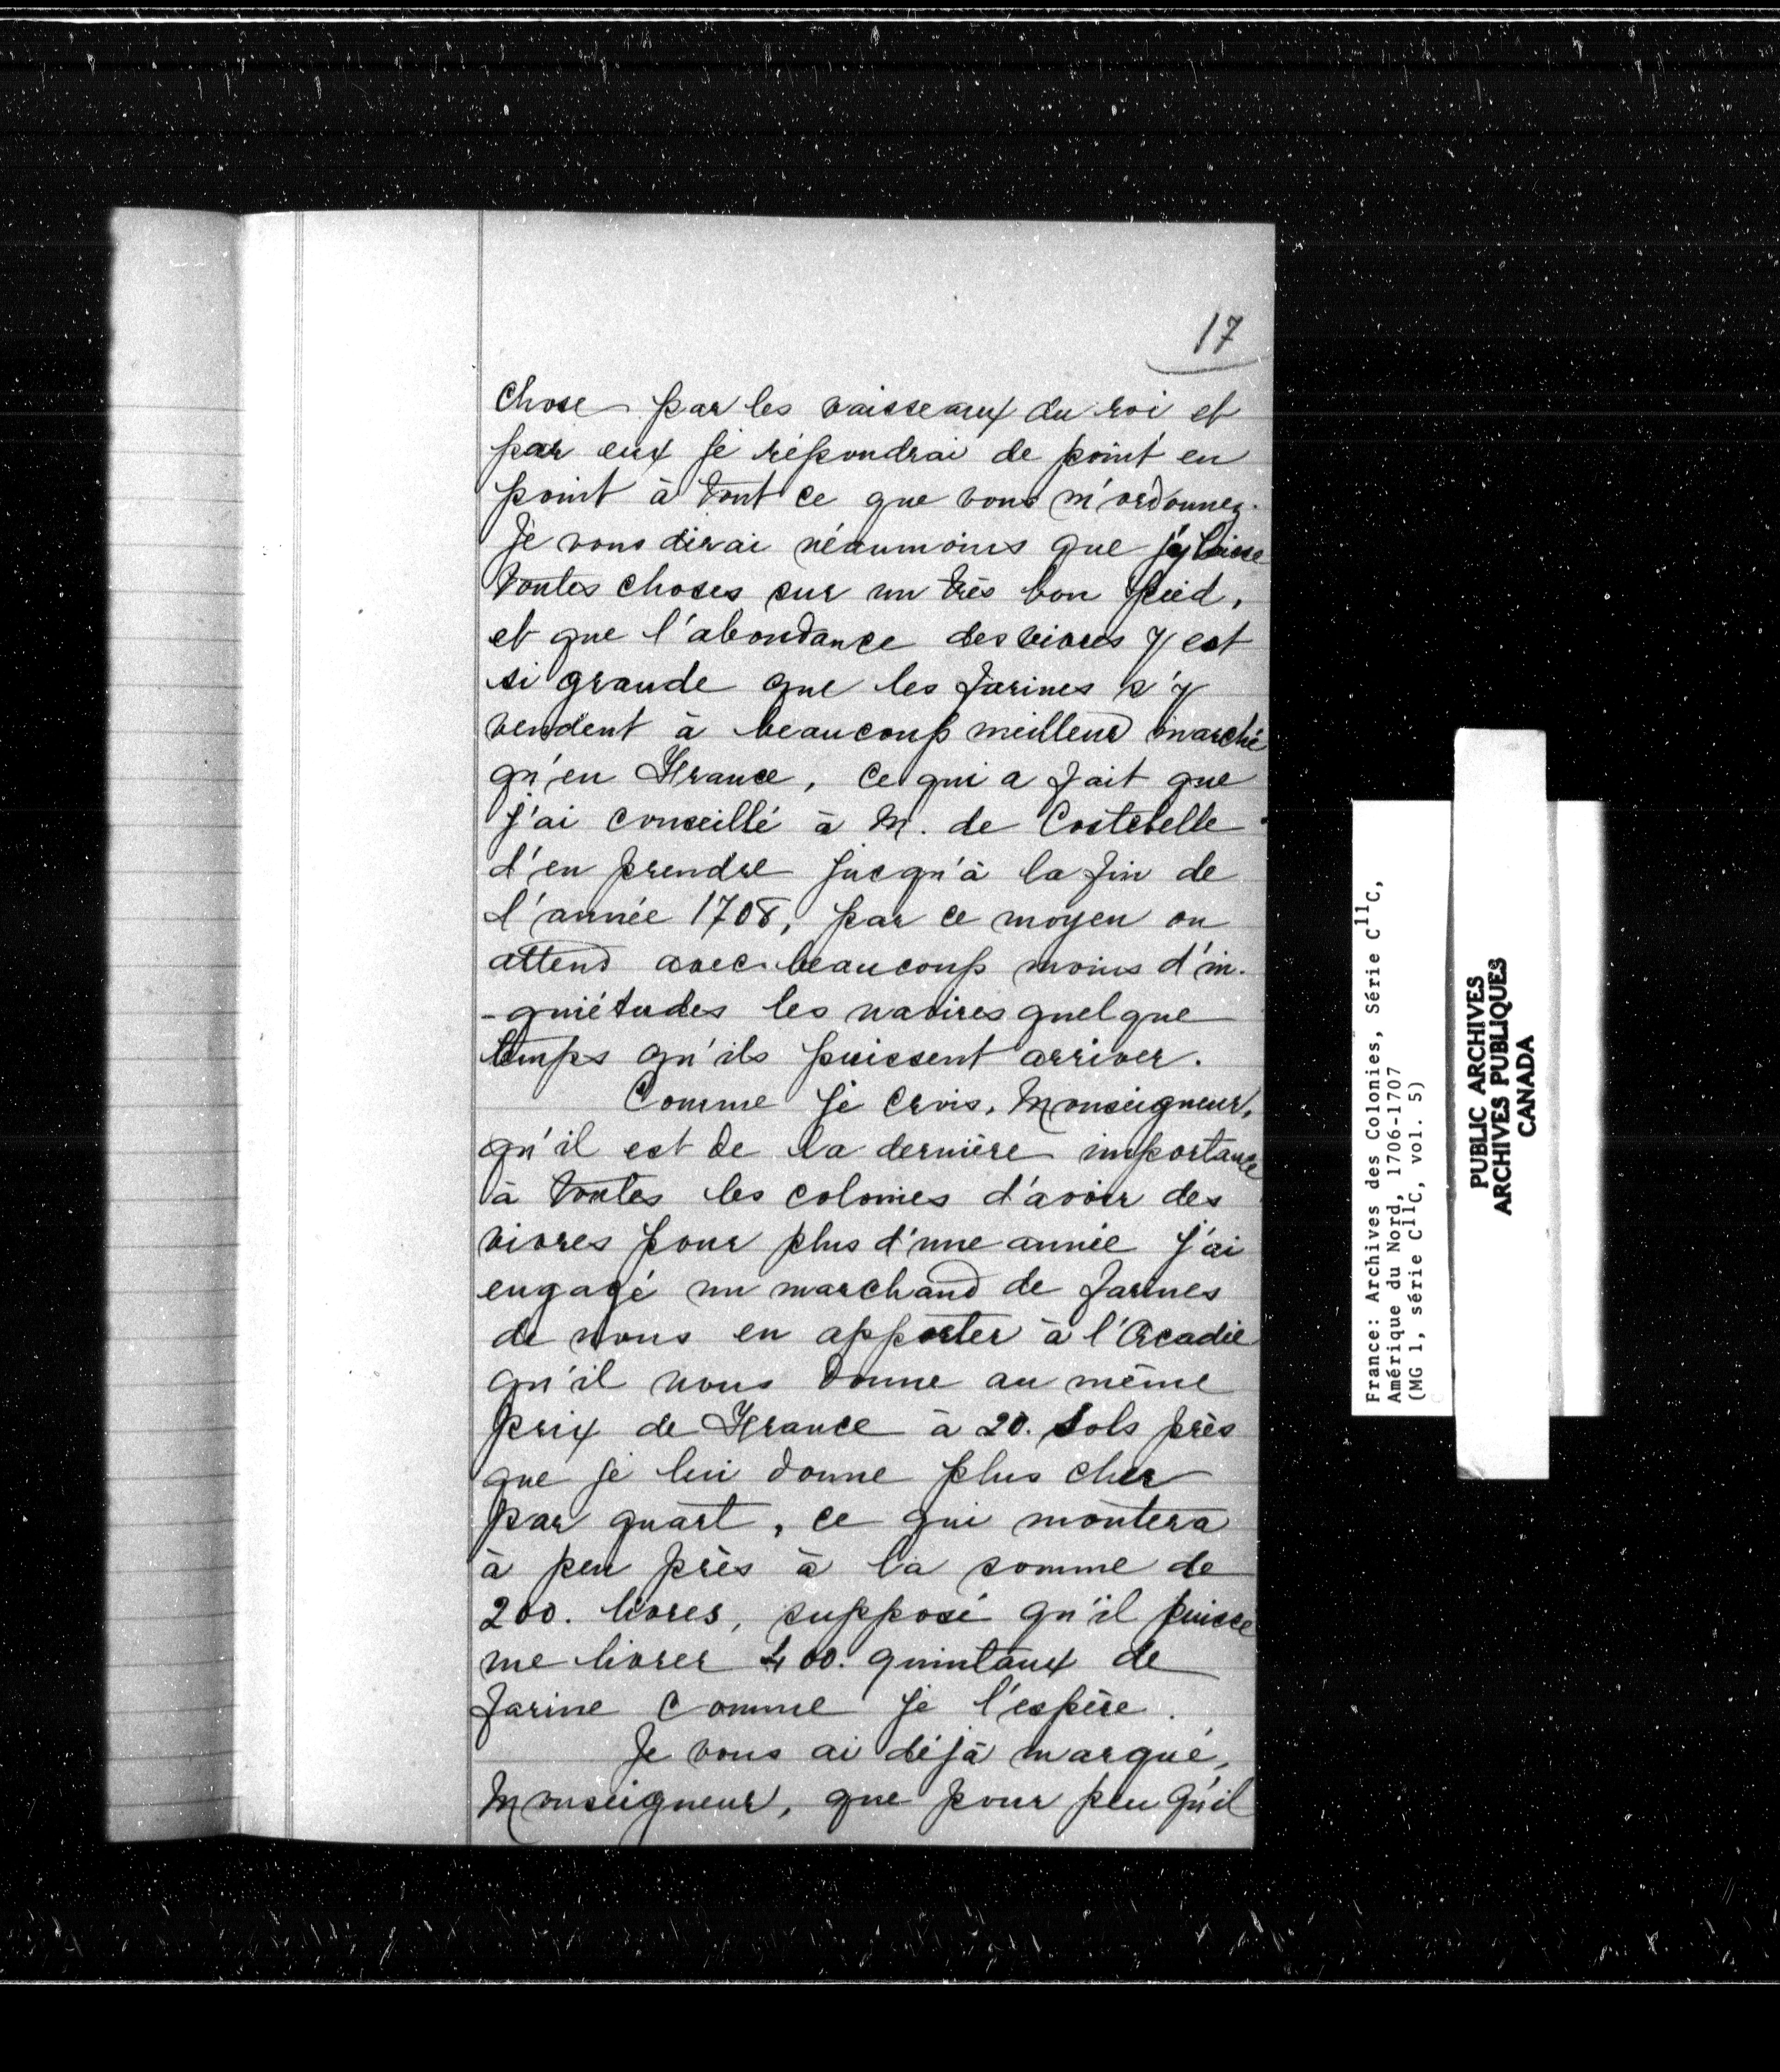 17
chose par les vaisseaux du roi et
par eux je répondrai de point en
point à tout ce que vous m'ordonnez.
Je vous dirai néaumoins que j'y laisse
toutes choses sur un très bon pied,
et que l'abondance des vivres y est
si grande que les farines s'y
vendent à beaucoup meilleur marché
qu'en France, ce qui a fait que
j'ai conseillé à M. de Costebelle
d'en prendre jusqu'à la fin de
l'année 1708, par ce moyen on
attend avec beaucoup moins d'in-
-quiétudes les navires quelque
temps qu'ils puissent arriver.
Comme je crois, Monseigneur,
qu'il est de la dernière importance
à toutes les colonies d'avoir des
vivres pour plus d'une année j'ai
engagé un marchand de farines
de nous en apporter à l'Acadie
qu'il nous donne au même
prix de France à 20. sols près
que je lui donne plus cher
par quart, ce qui montera
à peu près à la somme de
200. livres, supposé qu'il puisse
me livrer 400. quintaux de
farine comme je l'espère.
Je vous ai déjà marqué,
Monseigneur, que pour peu qu'il
France: Archives des Colonies, Série C11C,
Amérique du Nord, 1706-1707
(MG 1, série C11C, vol. 5)
PUBLIC ARCHIVES
ARCHIVES PUBLIQUES
CANADA